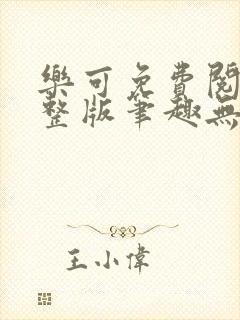 樂可免費閱
整版筆趣無
王小偉